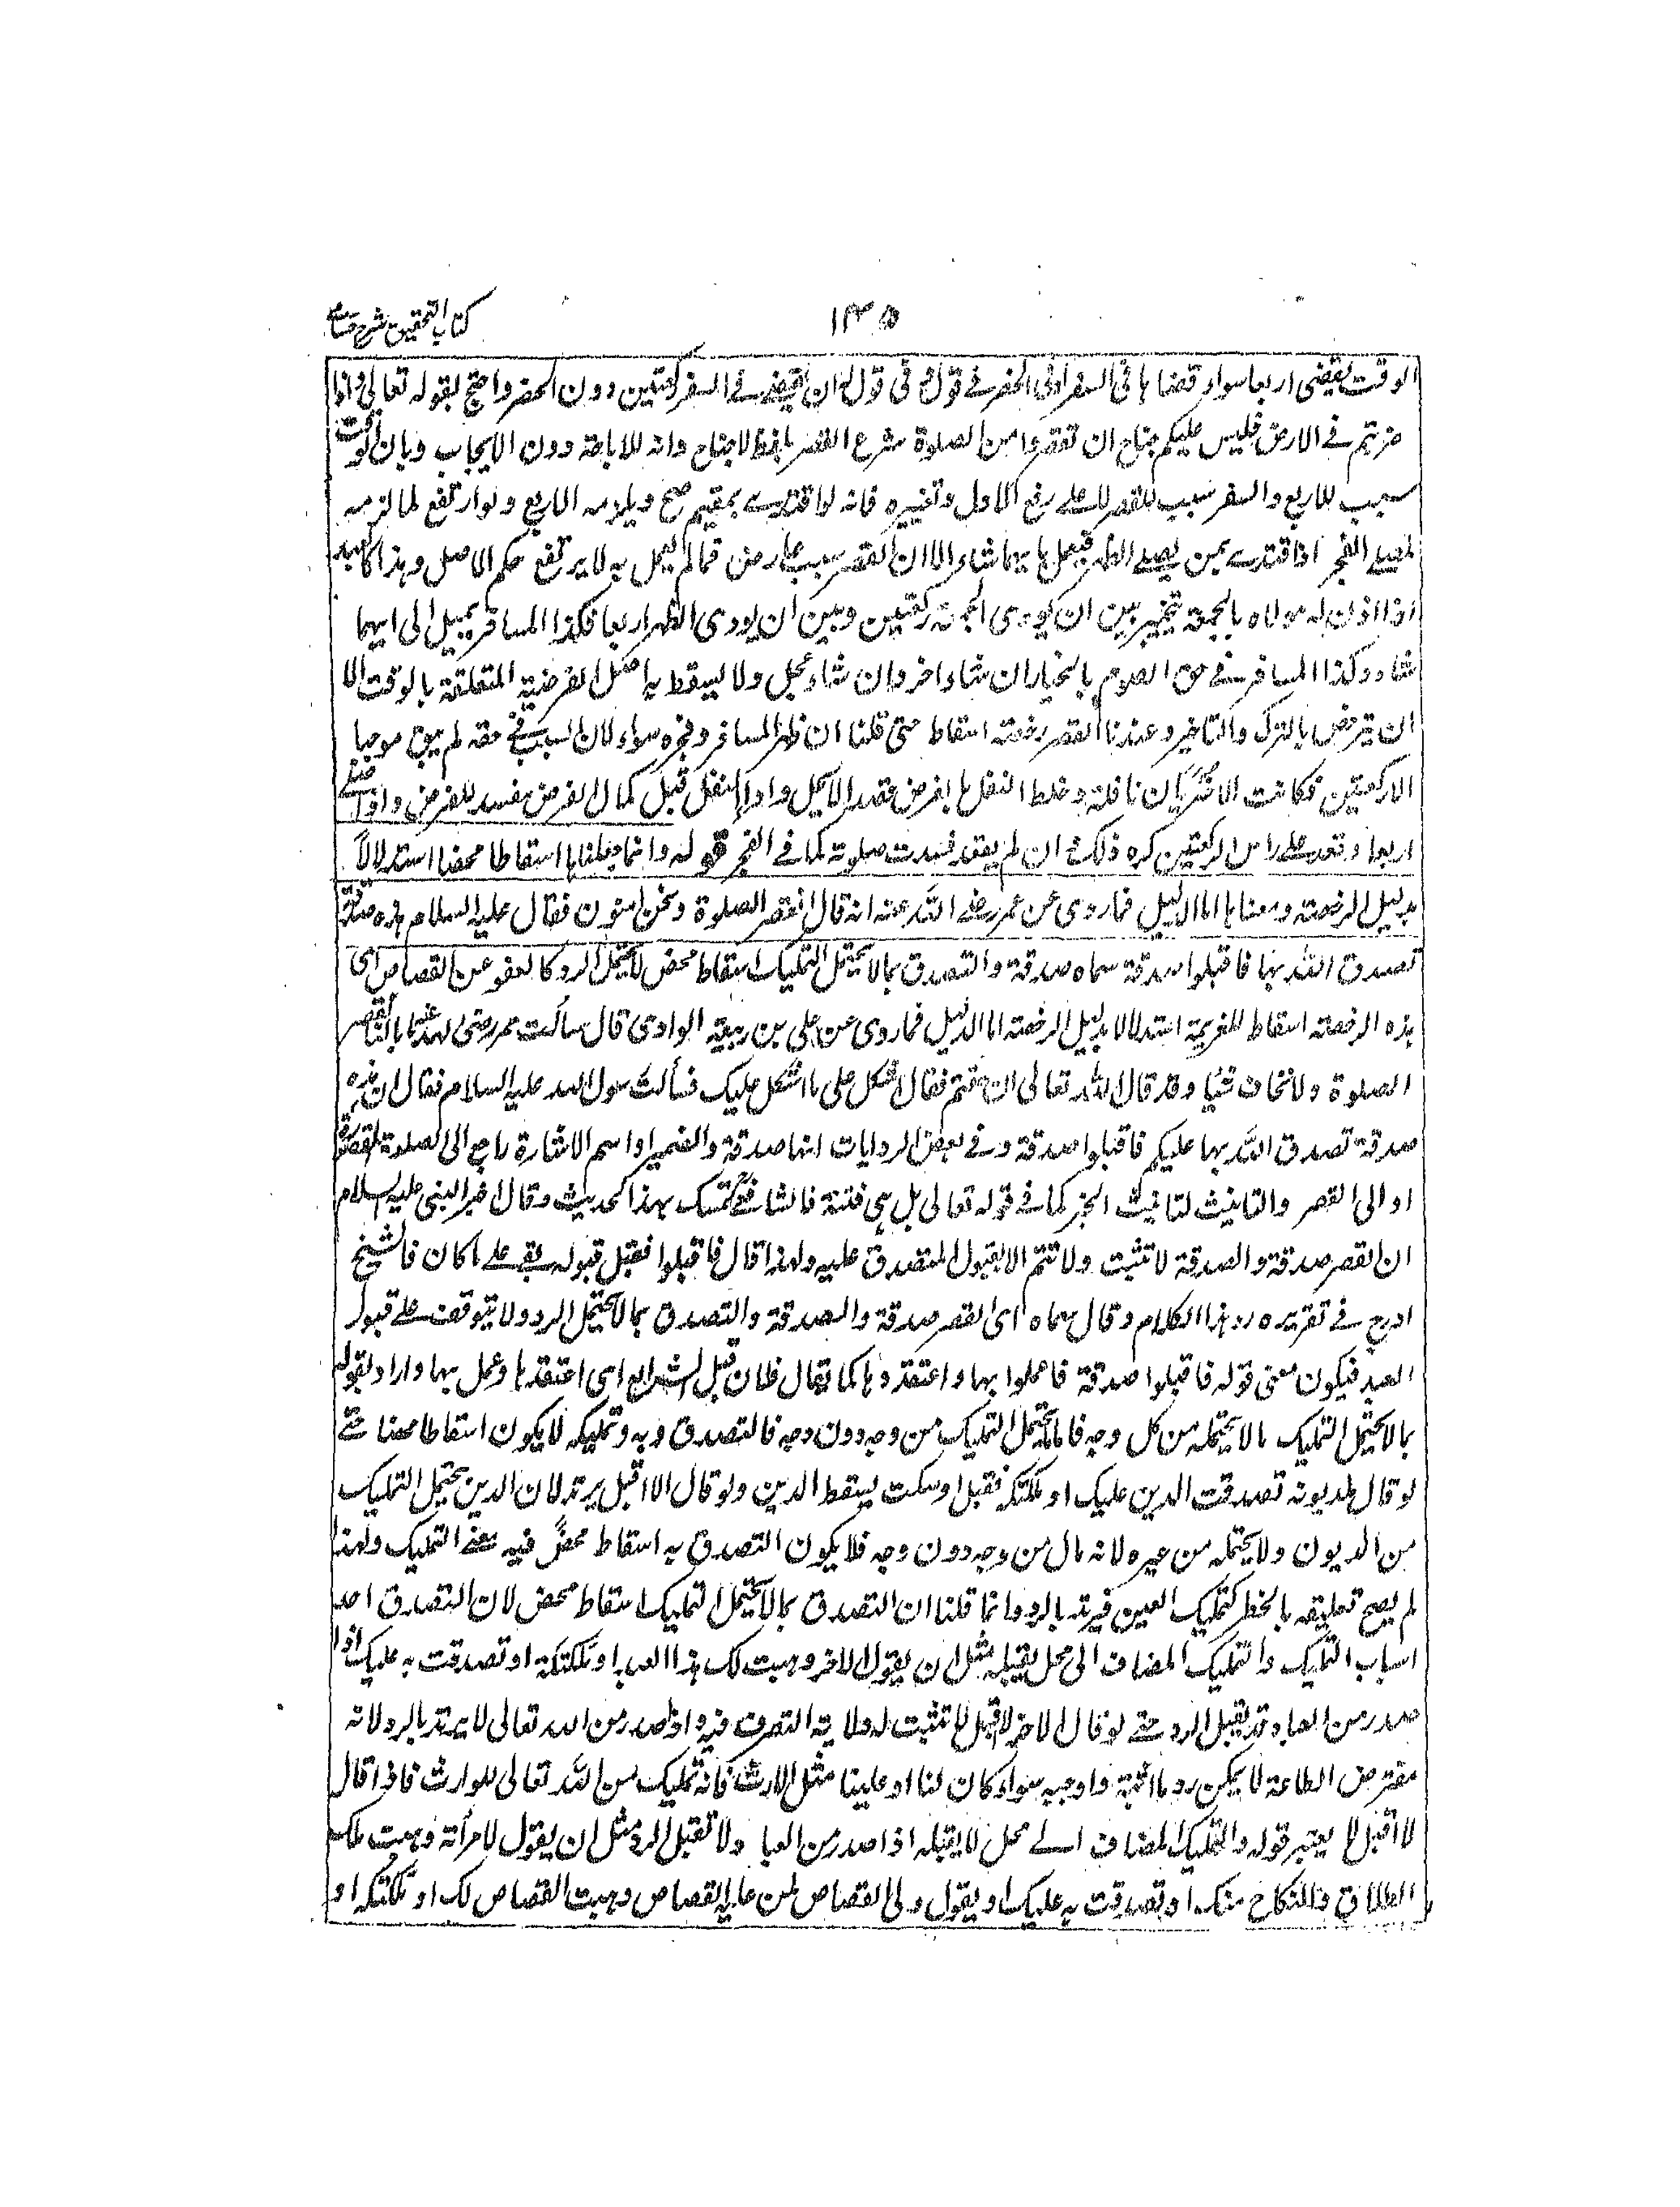 كتاب التحقيق شرح حسامى
١٣٥
الوقت يقضى اربعا سواء قضاها فى السفر او فى الحضر فے قول و فى قول له ان يقضے فے السفر ركعتين دون الحضر واحتج بقوله تعالى واذا
ضربتم فے الارض فليس عليكم جناح ان تقصروا من الصلوة شرع القصر بلفظ لا جناح وانه للاباحة دون الايجاب وبان الوقت
سبب للاربع والسفر سبب للقصر لا علے رفع الاول وتغييره فانه لو اقتدے بمقيم صح ويلزمه الاربع ولو ارتفع لما لزمه
لمصلے الفجر اذا اقتدے بمن يصلے الظهر فيعمل بايهما شاء الا ان القصر سبب عارض فما لم يعمل به لا يرتفع حكم الاصل وهذا كالعبد
اذا اذن له مولاه بالجمعة يتخير بين ان يودى الجمعة ركعتين وبين ان يودى الظهر اربعا فكذا المسافر يميل الى ايهما
شاء وكذا المسافر فے حق الصوم بالخيار ان شاء اخر وان شاء عجل ولا يسقط به اصل الفرضية المتعلقة بالوقت الا
ان يترخص بالترك والتاخير وعندنا القصر رخصة اسقاط حتى قلنا ان ظهر المسافر وفجره سواء لان السبب فے حقه لم يبق موجبا
الا ركعتين فكانت الاخريان نافلة وخلط النفل بالفرض قصدا لا يحل واداء النفل قبل كمال الفرض مفسد للفرض واذا صلے
اربعا وقعد علے راس الركعتين كره ذلك ان لم يقعد فسدت صلوته كما فے الفجر قوله وانما جعلناها اسقاطا محضا استدلالاً
بدليل الرخصة ومعناها اما الدليل فما روى عن عمر رضے الله عنه انه قال انقصر الصلوة ونحن امنون فقال عليه السلام هذه صدقة
تصدق الله بها فاقبلوا صدقة سماه صدقة والتصدق بما لا يحتمل التمليك اسقاط محض لا يحتمل الرد كالعفو عن القصاص اى
هذه الرخصة اسقاط للعزيمة استدلالا بدليل الرخصة اما الدليل فما روى عن على بن ربيعة الوادى قال سألت عمر رضى الله عنهما بالنا نقصر
الصلوة ولا نخاف شيئا وقد قال الله تعالى ان خفتم فقال اشكل على ما اشكل عليك فسألت رسول الله عليه السلام فقال ان هذه
صدقة تصدق الله بها عليكم فاقبلوا صدقة وفے بعض الروايات انها صدقة والضمير او اسم الاشارة راجع الى الصلوة المقصورة
او الى القصر والتانيث لتانيث الخبر كما فے قوله تعالى بل هى فتنة فالشافعے تمسك بهذا الحديث وقال اخبر النبى عليه السلام
ان القصر صدقة والصدقة لا تثبت ولا تتم الا بقبول المتصدق عليه ولهذا قال فاقبلوا فقبل قبوله بقے علے ما كان فالشيخ
ادرج فے تقريره رد هذا الكلام وقال سماه اى القصر صدقة والصدقة والتصدق بما لا يحتمل الرد ولا يتوقف علے قبول
العبد فيكون معنى قوله فاقبلوا صدقة فاعملوا بها واعتقدوها كما يقال فلان قبل الشرايع اى اعتقدها وعمل بها واراد بقوله
بما لا يحتمل التمليك ما لا يحتمله من كل وجه فاما ما يحتمل التمليك من وجه دون وجه فالتصدق به وتمليكه لا يكون اسقاطا محضا حتے
لو قال لمديونه تصدقت الدين عليك او ملكتكه فقبل او سكت يسقط الدين ولو قال لا اقبل يرتد لان الدين يحتمل التمليك
من المديون ولا يحتمله من غيره لانه مال من وجه دون وجه فلا يكون التصدق به اسقاط محض فيه معنے التمليك ولهذا
لم يصح تعليقه بالخطر كتمليك العين فيرتد بالرد وانما قلنا ان التصدق بما لا يحتمل التمليك اسقاط محض لان التصدق احد
اسباب التمليك والتمليك المضاف الى محل يقبله مثل ان يقول لاخر وهبت لك هذا العبد او ملكتكه او تصدقت به عليك اذا
صدر من العباد قد يقبل الرد حتے لو قال الاخر لا اقبل لا تثبت له ولاية التصرف فيه واذا صدر من الله تعالى لا يرتد بالرد لانه
مفترض الطاعة لا يمكن رد ما اثبته واوجبه سواء كان لنا او علينا مثل الارث فانه تمليك من الله تعالى للوارث فاذا قال
لا اقبل لا يعتبر قوله والتمليك المضاف الے محل لا يقبله اذا صدر من العبا ولا تقبل الرد مثل ان يقول لامرأته وهبت لك
الطلاق والنكاح منك او تصدقت به عليك او يقول ولى القصاص لمن عليه القصاص وهبت القصاص لك او ملكتكه او